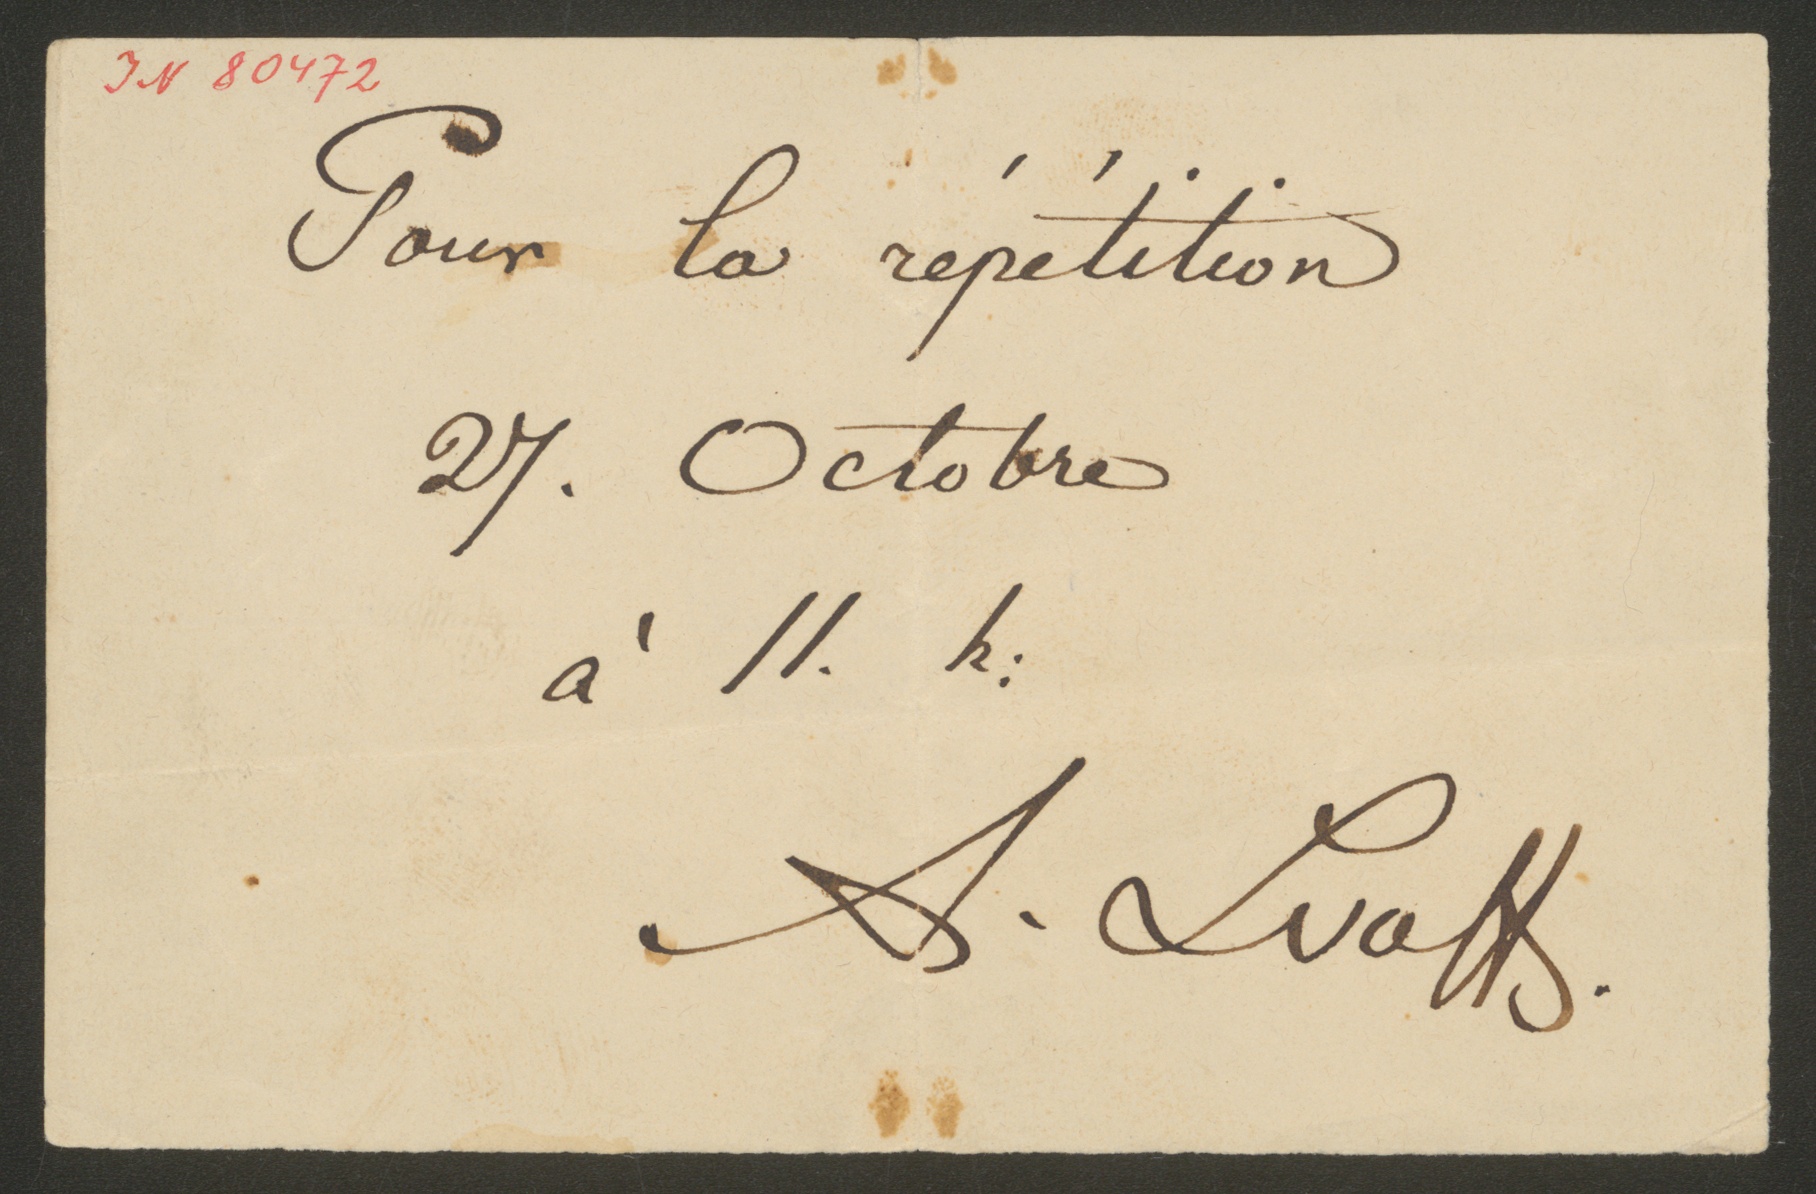 IN 80472
Pour la répétition
27. Octobre
à 11. h:
A. Lvoff.